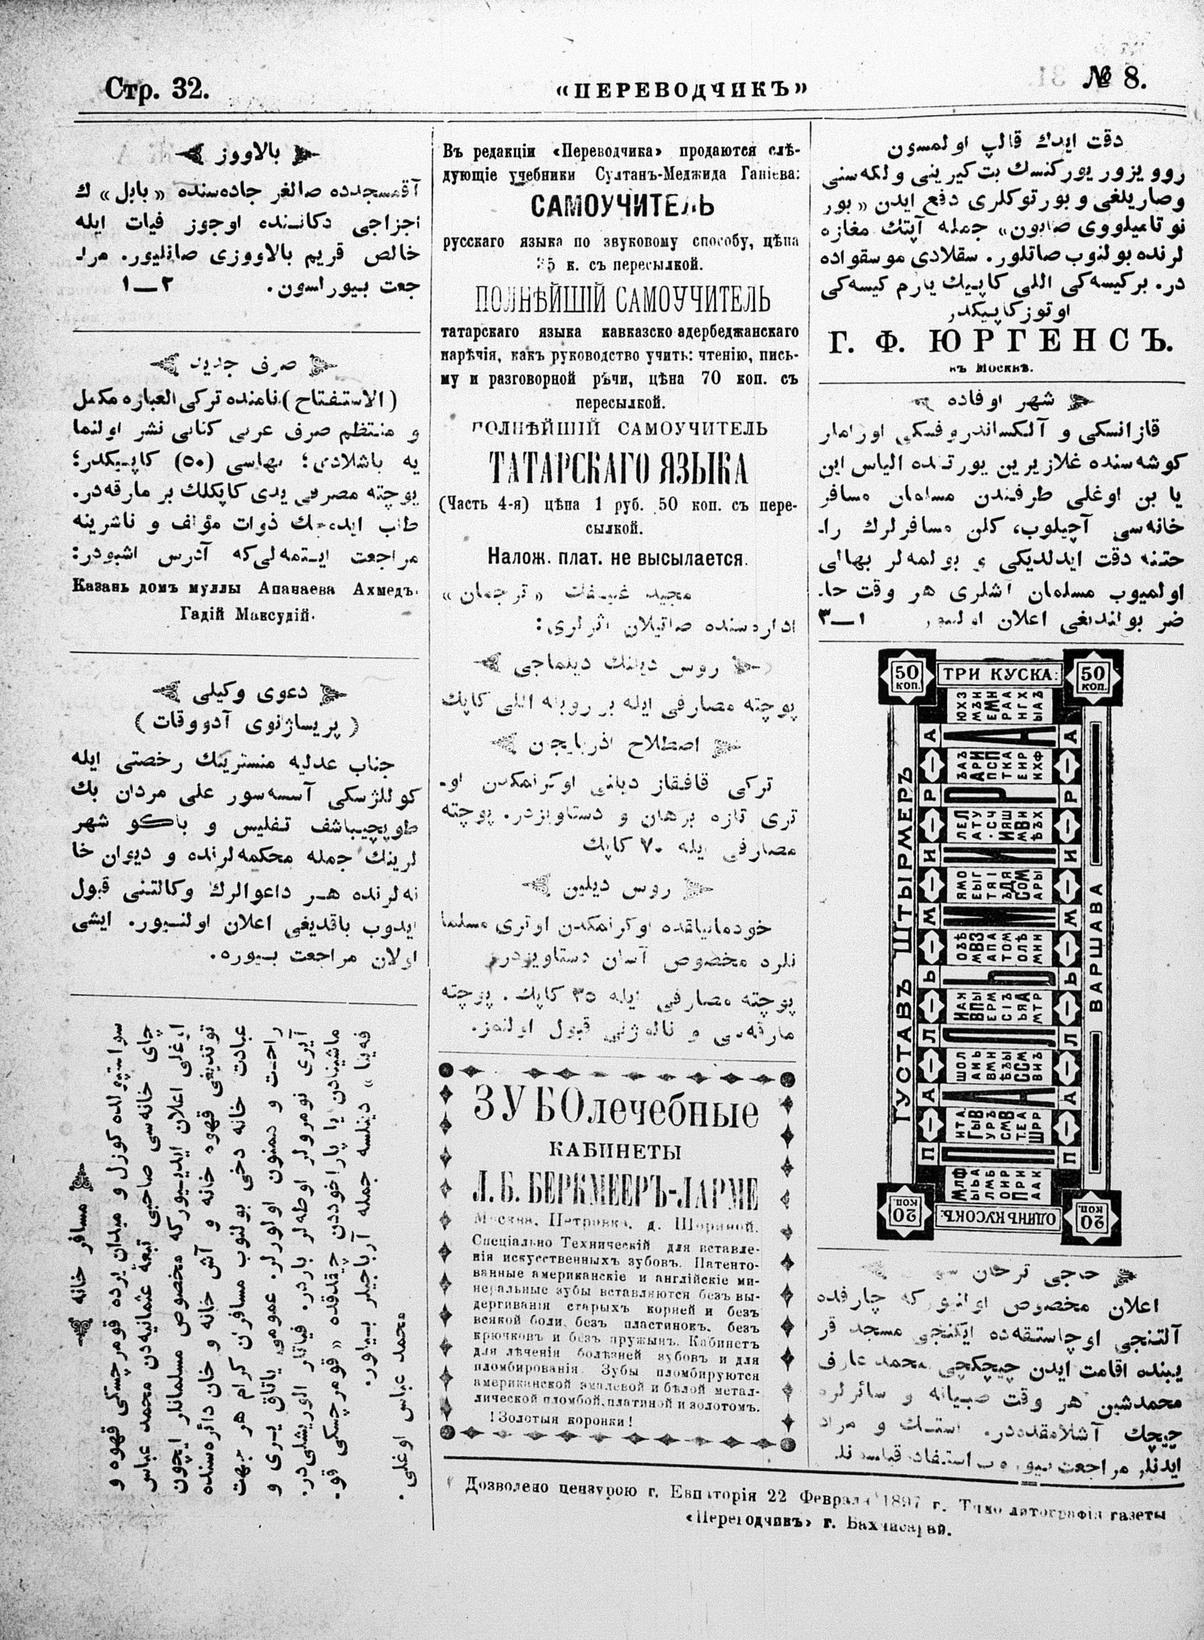 Стр. 32.
«ПЕРЕВОДЧИКЪ»
№ 8.
بالاووز
آقمسجدده صالغر جاده‌سنده «بابل» ك
اجزاجی دكانـنده اوجوز فيات ايله
خالص قريم بالاووزی صاتليور. مرا-
جعت بيوراسون. ٣—١
صرف جديد
(الاستفتاح) نامنده تركی العباره مكمل
و منتظم صرف عربی كتابی نشر اولنما
يه باشلادی؛ بهاسی (٥٠) كاپيكدر؛
پوچته مصرفی يدی كاپكلك بر مارقه‌در.
طلب ايده‌جك ذوات مؤلف و ناشرينه
مراجعت ايـتمه‌لی‌كه آدرس اشبودر:
Казань домъ муллы Апанаева Ахмедъ-
Гадій Максудій.
دعوی وكيلی
(پريساژنوی آدووقات)
جناب عدليه منستريـنك رخصتی ايله
كوللژسكی آسسه‌سور علی مردان بك
طوپچيباشف تـفليس و باكو شهر
لرينك جمله محكمه‌لرنده و ديوان خا
نه‌لرنده هـر داعوالرك وكالتـنی قبول
ايدوب باقديغی اعلان اولنـيور. ايشی
اولان مراجعت بـيوره.
مسافر خانه
سواستپولده كوزل و ميدان يرده قومرچسكی قهوه و
چای خانه‌سی صاحبی تبعۀ عثمانيه‌دن محمد عباس
اوغلی اعلان ايديـيوركه مخصوص مسلمانلر ايچون
توتديغی قهوه خانه و آش خانه و خان دائره‌سنده
عبادت خانه دخی بولنوب مسافرن كرام هر جهت
راحـت و ممنون اولورلر. عمومی ياتاق يـری و
آيری نومرولر اوطه‌لر باردر. فياتلر الوريشلی‌در.
ماشينادن يا پاراخوددن چيقدقده «قومرچسكی قو-
فه‌ينا» دينلسه جمله آرباجيلر بـيلور.
محمد عباس اوغلی.
Въ редакціи «Переводчика» продаются слѣ-
дующіе учебники Султанъ-Меджида Ганіева:
САМОУЧИТЕЛЬ
русскаго языка по звуковому способу, цѣна
35 к. съ пересылкой.
ПОЛНѢЙШІЙ САМОУЧИТЕЛЬ
татарскаго языка кавказско-адербеджанскаго
нарѣчія, какъ руководство учить: чтенію, пись-
му и разговорной рѣчи, цѣна 70 коп. съ
пересылкой.
ПОЛНѢЙШІЙ САМОУЧИТЕЛЬ
ТАТАРСКАГО ЯЗЫКА
(Часть 4-я) цѣна 1 руб. 50 коп. съ пере-
сылкой.
Налож. плат. не высылается.
مجيد غنيـفك «ترجمان»
اداره‌سنده صاتيلان اثرلری:
روس ديلنك ديلماجی
پوچته مصارفی ايله بر روبله اللی كاپك
اصطلاح اذربايجان
تركی قافقاز ديلنی اوكرانمكدن او-
تری تازه برهان و دستاويزدر. پوچته
مصارفی ايله ٧٠ كاپك
روس ديلين
خودمانياقده اوكرانمكدن اوتری مسلما
نلره مخصوص آسان دستاويزدر
پوچته مصارفی ايله ٣٥ كاپك. پوچته
مارقه‌سی و نالوژنی قبول اولنمز.
ЗУБОлечебные
КАБИНЕТЫ
Л. Б. БЕРКМЕЕРЪ-ЛАРМЕ
Москва, Петровка, д. Шориной.
Спеціально Техническій для вставле-
нія искусственныхъ зубовъ. Патенто-
ванные американскіе и англійскіе ми-
неральные зубы вставляются безъ вы-
дергиванія старыхъ корней и безъ
всякой боли, безъ пластинокъ, безъ
крючковъ и безъ пружинъ. Кабинетъ
для лѣченія болѣзней зубовъ и для
пломбированія. Зубы пломбируются
американской эмалевой и бѣлой метал-
лической пломбой, платиной и золотомъ.
!Золотыя коронки!
دقت ايدك قالپ اولمسون
روو يزور يوركنسك بت كيرينی و لكه‌سنی
وصاريلغی و بورتوكلری دفع ايدن «بور
نوتاميلووی صابون» جمله آپتك مغازه
لرنده بولنوب صاتلور. سقلادی موسقواده
در. بركيسه‌كی اللی كاپيك يارم كيسه‌كی
اوتوز كاپيكدر
Г. Ф. ЮРГЕНСЪ.
въ Москвѣ.
شهر اوفاده
قازانسكی و آلكساندروفسكی اورامار
كوشه‌سنده غلازيرين يورتـنده الياس ابن
يا بن اوغلی طرفندن مسلمان مسافر
خانه‌سی آچيلوب، كلن مسافرلرك را-
حتـنه دقت ايدلديكی و بولمه‌لر بهالی
اولميوب مسلمان آشلری هر وقت حا-
ضر بولنديغی اعلان اولنيور ٣—١
50 коп.
ТРИ КУСКА:
50 коп.
ГУСТАВЪ ШТЫРМЕРЪ
ПАЛЬМИРА
ПАЛЬМИРА
ПАЛЬМИРА
ВАРШАВА
20 коп.
ОДИНЪ КУСОКЪ:
20 коп.
حاجی ترخان
اعلان مخصوص اولنيوركه چارفده
آلتنجی اوچاستقه‌ده ايكنجی مسجد قر
يبنده اقامت ايدن چيچكچی محمد عارف
محمدشين هر وقت صبيانه و سائرلره
چيچك آشلامقده‌در. استـك و مراد
ايدنلر مراجعت
Дозволено цензурою г. Евпаторія 22 Февраля 1897 г. Типо литографія газеты
«Переводчикъ» г. Бахчисарай.